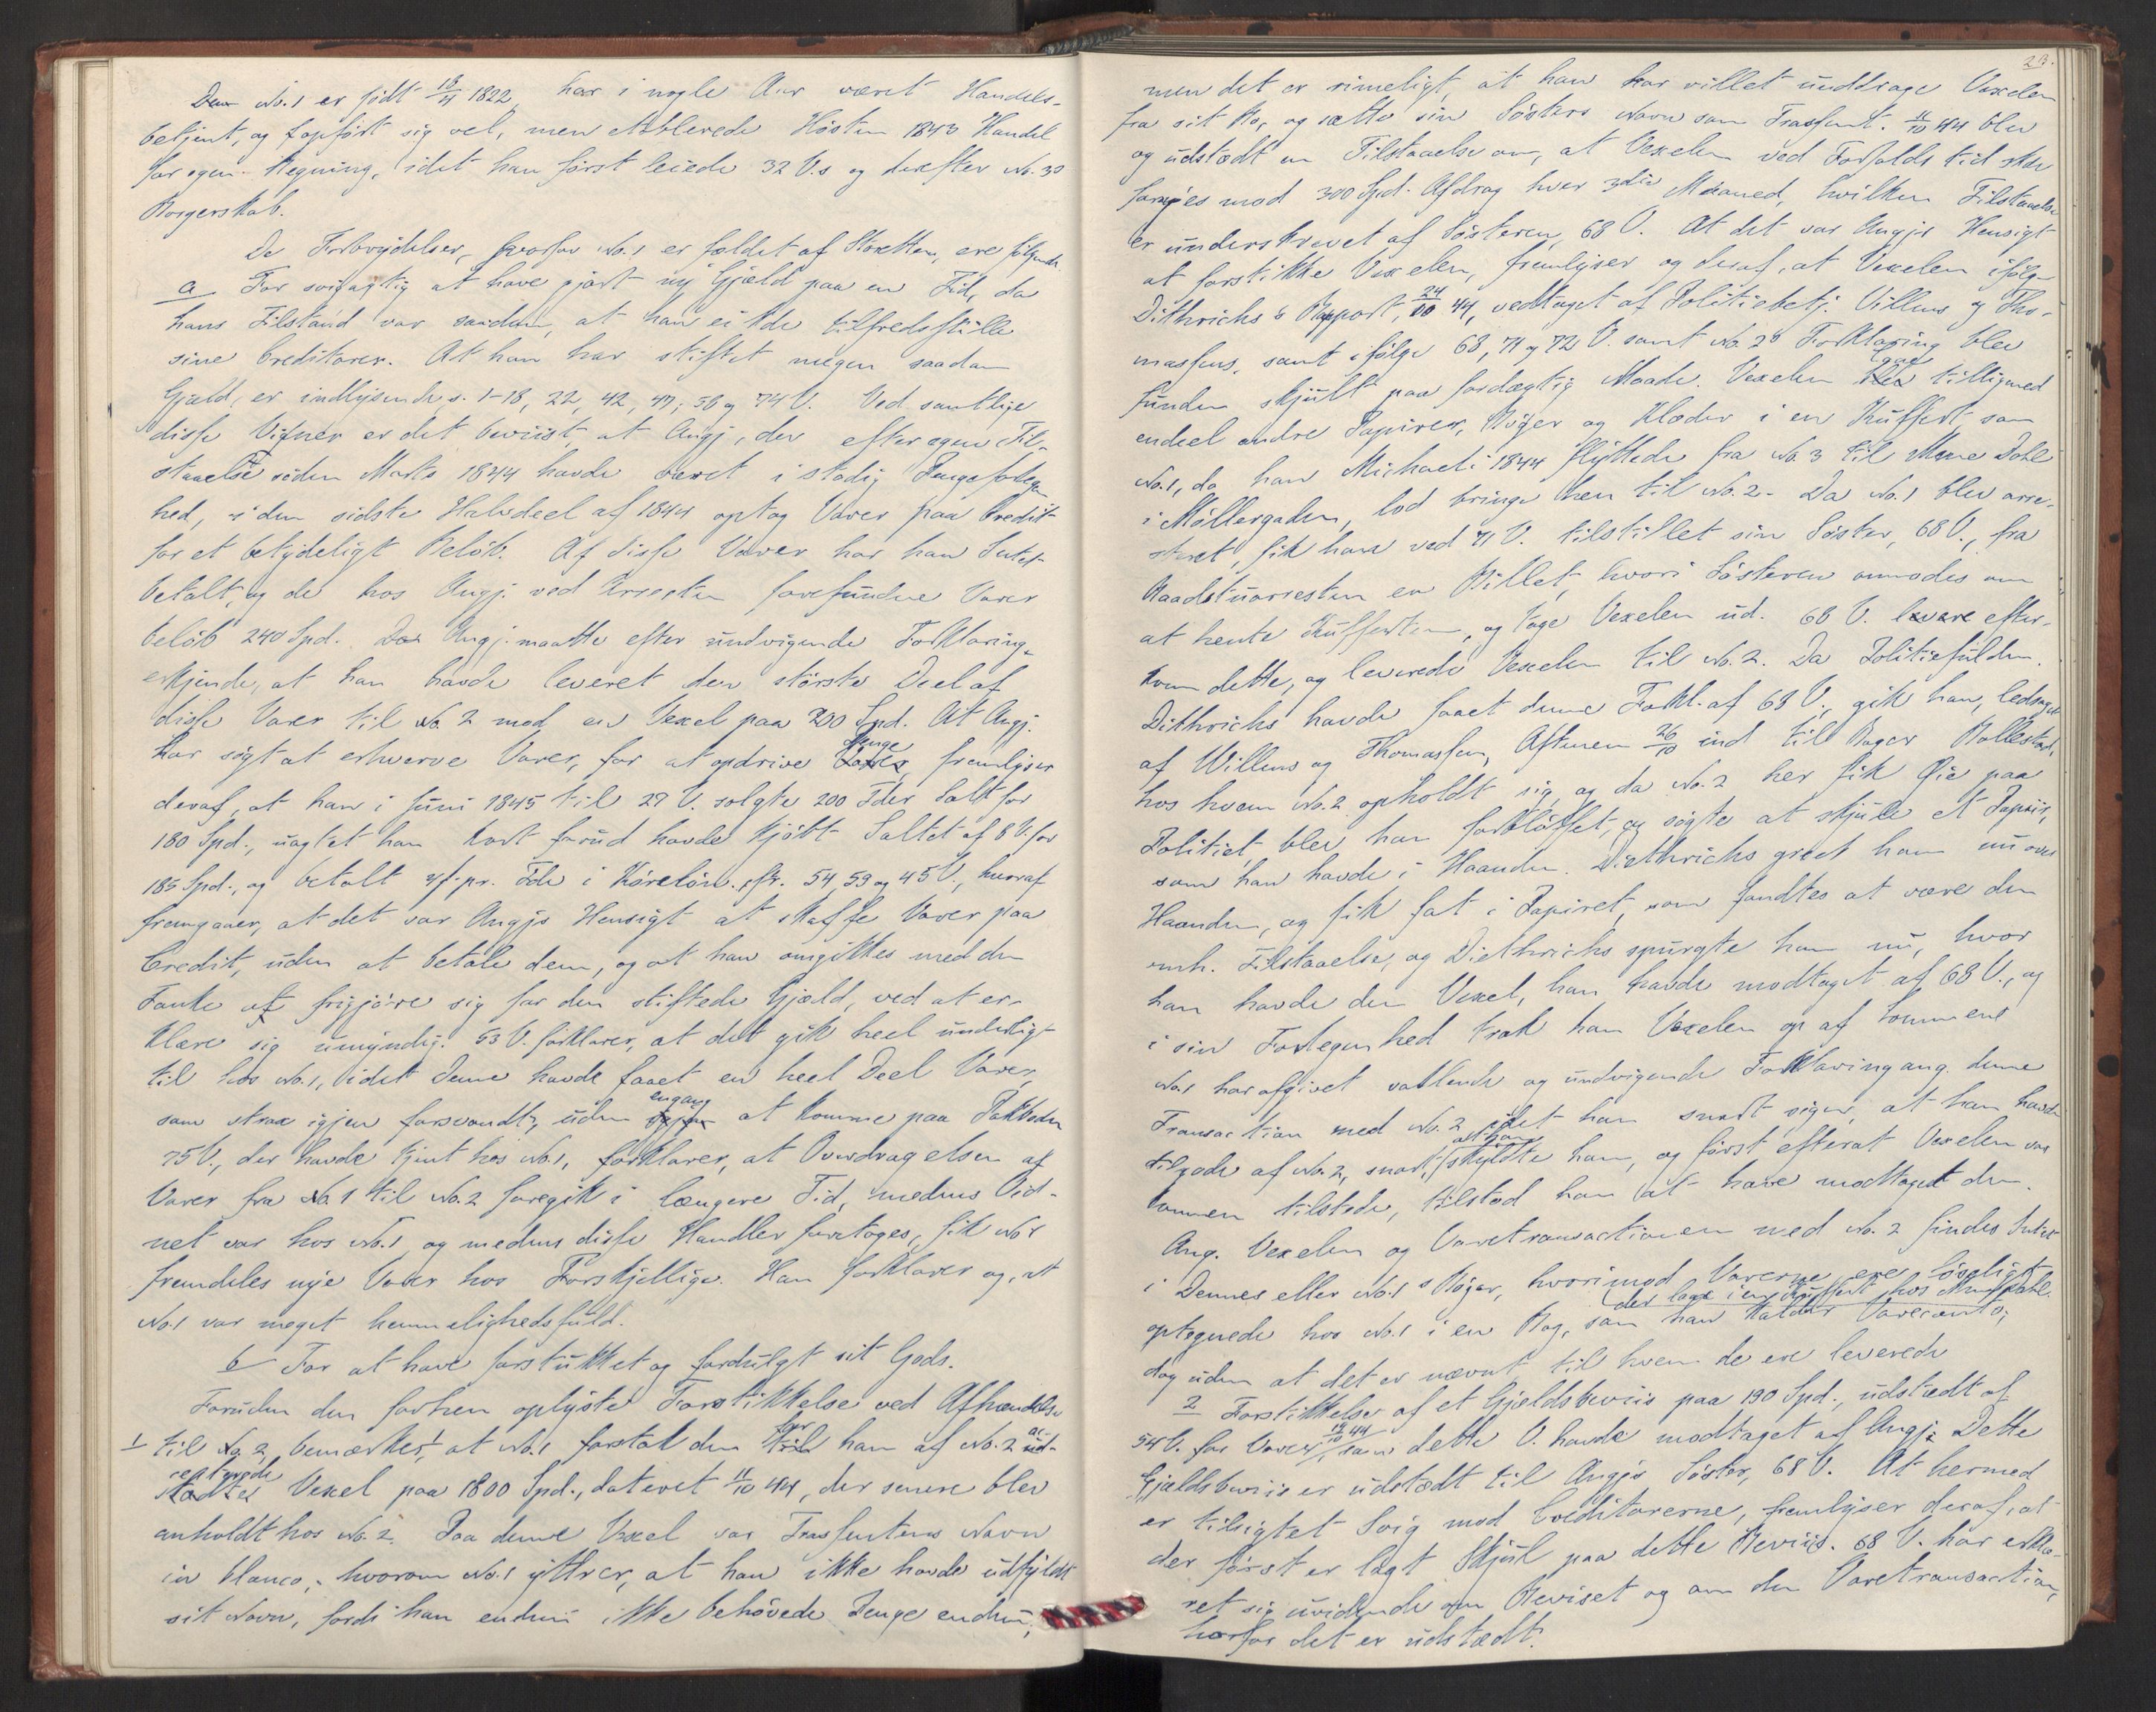 Den No. 1 er född 18/4 1822, har i nogle Aar været Handels-
betjent, og opført sig vel, men etablerede Høsten 1843 Handel
for egen Regning, idet han først leiede 32 V.s og derefter No. 30
Borgerskab.
De Forbrydelser, hvorfor No. 1 er fældet af Stæatten, ere følgende
a For svigagtig at have gjørt ny Gjæld paa en Tid, da
hans Tilstand var saadan, at han ei kde tilfredsstille
sine Creditorer. At han har stiftet megen saadan
Gjæld, er indlysende s. 1-18, 22, 42, 47, 56 og 74 V. Ved samtlige
disse Vidner er det beviist, at Angj., der efter egen Til-
staaelse siden Marts 1844 havde været i stadig Pengeforlegen
hed, i den sidste Halvdeel af 1844 optog Varer paa Credit
for et betydeligt Beløb. Af disse Varer har han Intet
betalt, og de hos Angj. ved Arresten forefundne Varer
beløb 240 Spd. Angj. maatte efter undvigende Forklaring
erkjende, at han havde leveret den største Deel af
disse Varer til No. 2 mod en Vexel paa 200 Spd. At Angj.
har søgt at erhverve Varer, for at opdrive Penge, fremlyser
deraf, at han i Juni 1845 til 29 V. solgte 200 Tdr Salt for
180 Spd., uagtet han kort forud havde kjøbt Saltet af 8 V. for
185 Spd., og betalt 4 f. pr. Tde i Kørelön. cfr. 54, 53 og 45 V., hvoraf
fremgaaer, at det var Angjs Hensigt at skaffe Varer paa
Credit, uden at betale dem, og at han omgikkes med den
Tanke at frigjøre sig for den stiftede Gjæld, ved at er-
klære sig umyndig. 53 V. forklarer, at det gik heel underligt
til hos No. 1, idet Denne havde faaet en heel Deel Varer,
som strax igjen forsvandt, uden engang at komme paa Pakboden
75 V., der havde tjent hos No. 1, forklarer, at Overdragelsen af
Varer fra No. 1 til No. 2 foregik i længere Tid, medens Vid-
net var hos No. 1, og medens disse Handler foretoges, fik No 1
fremdeles nye Varer hos Forskjellige. Han forklarer og, at
No. 1 var meget hemmelighedsfuld.
b For at have forstukket og fordulgt sit Gods.
Foruden den forhen oplyste Forstikkelse ved Afhændelse
1 til No. 2, bemærkes, at No. 1 forstak den for han af No. 2 ac-
cepterede Vexel paa 1800 Spd., dateret 11/10 44, der senere blev
anholdt hos No. 2. Paa denne Vexel var Trassentens Navn
in blanco, hvorom No. 1 yttrer, at han ikke havde udfyldt
sit Navn, fordi han endnu ikke behøvede Penge endnu,
23.
men det er rimeligt, at han har villet unddrage Vexelen
fra sit Bo, og sætte sin Søsters Navn som Trassent. 11/10 44 blev
og udstædt en Tilstaaelse om, at Vexelen ved Forfalds tid skde
fornyes mod 300 Spd. Afdrag hver 3die Maaned, hvilken Tilstaaelse
er underskrevet af Søsteren, 68 V. At det var Angjs Hensigt
at forstikke Vexelen, fremlyser og deraf, at Vexelen ifølge
Dithrichs's Rapport, 24/10 44, vedtaget af Politiebetj. Villums og Tho-
massens, samt ifølge 68, 71 og 72 V. samt No. 2s Forklaring blev
funden skjult paa fordægtig Maade. Vexelen laae tilligemed
endeel andre Papirer, Bøger og Klæder i en Kuffert, som
No. 1, da han Michaeli 1844 flyttede fra No. 3 til Mme Dahl
i Møllergaden, lod bringe hen til No. 2. Da No. 1 blev arre-
steret, fik han ved 71 V. tilstillet sin Søster, 68 V., fra
Raadstuarresten en Billet, hvori Søsteren anmodes om
at hente Kufferten, og tage Vexelen ud. 68 V. efter-
kom dette, og leverede Vexelen til No. 2. Da Politiefuldm.
Dithrichs havde faaet denne Forkl. af 68 V., gik han, ledsaget
af Willums og Thomassen, Aftenen 26/10 ind til Bager Bollestad,
hos hvem No. 2 opholdt sig, og da No. 2 her fik Øie paa
Politiet, blev han forbløffet, og søgte at skjule et Papiir,
som han havde i Haanden. Diethrichs greeb ham nu over
Haanden, og fik fat i Papiret, som fandtes at være den
omh. Tilstaaelse, og Diethrichs spurgte ham nu, hvor
han havde den Vexel, han havde modtaget af 68 V., og
i sin Forlegenhed trak han Vexelen op af Lommens
No. 1 har afgivet vaklende og undvigende Forklaring ang. denne
Transaction med No. 2, idet han snart siger, at han havde
tilgode af No. 2, snart, at han skyldte ham, og først efterat Vexelen var
kommen tilstede, tilstod han at have modtaget den.
Ang. Vexelen og Varetransactionen med No. 2 findes Intet
i Dennes eller No. 1s Bøger, hvorimod Varerne ere løseligt
optegnede hos No. 1 i en Bog, der laae i en Kuffert hos Mme Dahl, som han kalder Vareconto,
dog uden at det er nævnt til hvem de ere leverede
2 Forstikkelse af et Gjeldsbeviis paa 190 Spd., udstædt af
54 V. for Varer, 19/10 44 som dette V. havde modtaget af Angj. Dette
Gjældsbeviis er udstædt til Angjs Søster, 68 V. At hermed
er tilsigtet Svig mod Creditorerne, fremlyser deraf, at
der først er lagt Skjul paa dette Beviis. 68 V. har erklæ-
ret sig uvidende om Beviset og om den Varetransaction,
hvorfor det er udstædt.